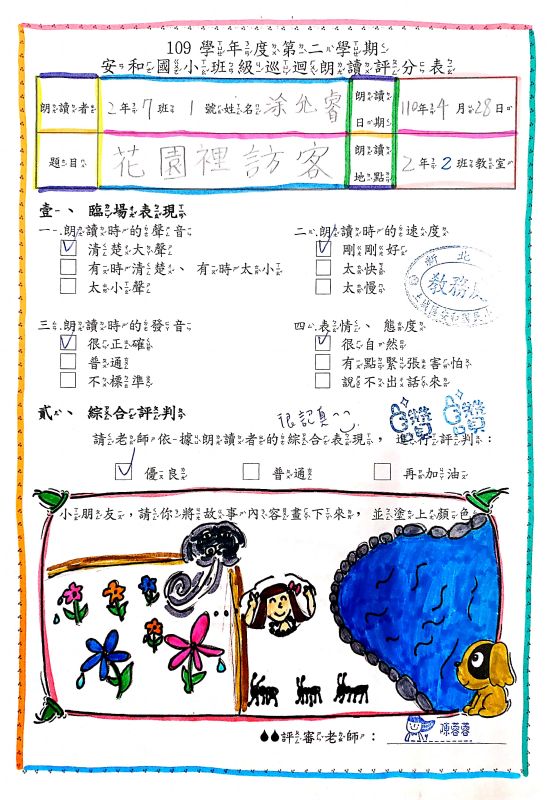 109 學年度第二學期
安和國小班級巡迴朗讀評分表
朗讀者 2年7班 1號姓名涂允睿 朗讀日期 110年4月28日
題目 花園裡訪客 朗讀地點 2年2班教室
壹、臨場表現
一、朗讀時的聲音
清楚大聲
有時清楚、有時太小
太小聲
二、朗讀時的速度
剛剛好
太快
太慢
新北
教務處
三、朗讀時的發音
很正確
普通
不標準
四、表情、態度
很自然
有點緊張害怕
說不出話來
貳、綜合評判
很認真
讚 讚
請老師依據朗讀者的綜合表現,進行評判:
優良 普通 再加油
小朋友,請你將故事內容畫下來,並塗上顏色
評審老師: 陳蓉蓉